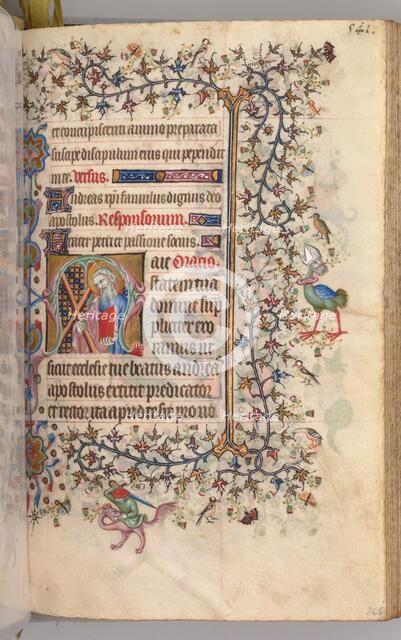 541.
et concupiscenti animo preparata
suscipe discipulum eius qui pependit
in te. Versus.
Andreas xpi famulus dignus deo
apostolus. Responsorium.
frater petri et passione socius.
Oratio
statem tua
domine sup
pliciter exo
ramus ut
sicut ecclesie tue beatus andreas
apostolus extitit predicator
et rector ita apud te sit pro no
Heritage
Images